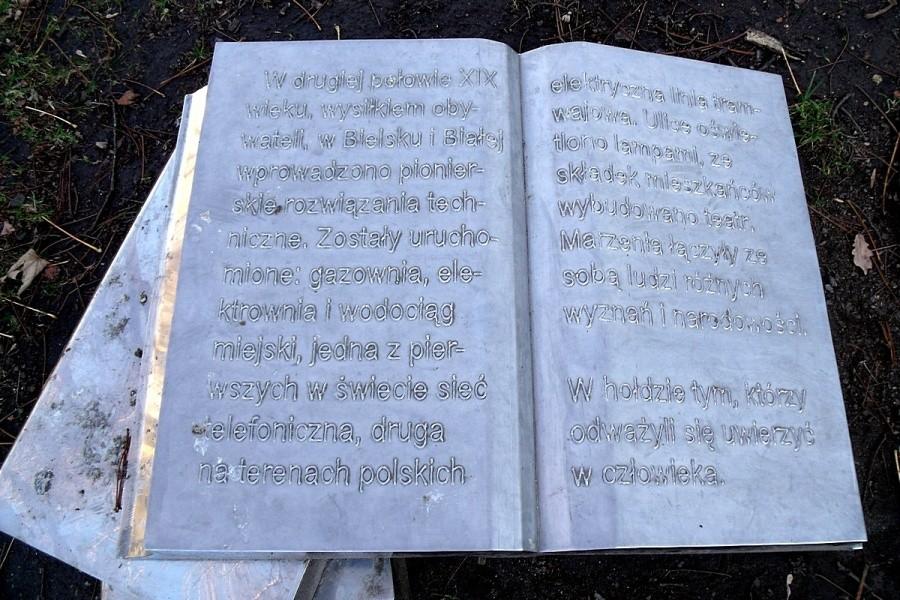 W drugiej połowie XIX
wieku, wysiłkiem oby-
wateli, w Bielsku i Białej
wprowadzono pionier-
skie rozwiązania tech-
niczne. Zostały urucho-
mione: gazownia, ele-
ktrownia i wodociąg
miejski, jedna z pier-
wszych w świecie sieć
telefoniczna, druga
na terenach polskich
elektryczna linia tram-
wajowa. Ulice oświe-
tlono lampami, ze
składek mieszkańców
wybudowano teatr.
Marzenia łączyły ze
sobą ludzi różnych
wyznań i narodowości.
W hołdzie tym, którzy
odważyli się uwierzyć
w człowieka.